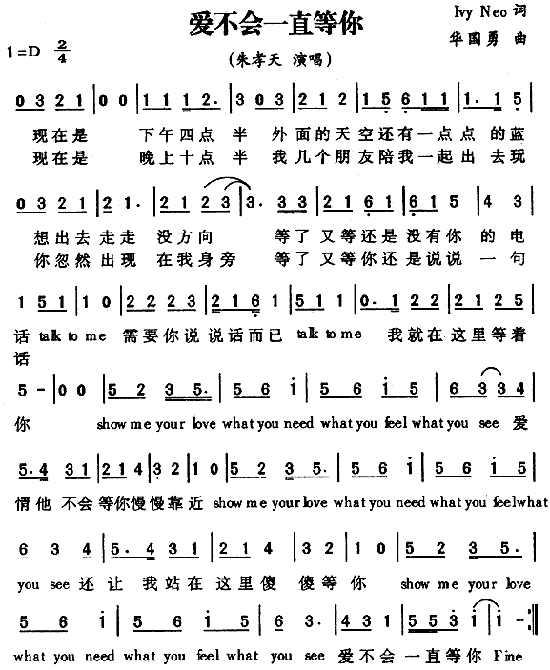 爱不会一直等你
Ivy Neo 词
1=D 2/4
(朱孝天 演唱)
华国勇 曲
0 3 2 1 | 0 0 | 1 1 1 2. | 3 0 3 | 2 1 2 | 1 5 6 1 1 | 0. 1 5 |
现在是 下午四点 半 外面的天空还有一点点 的蓝
现在是 晚上十点 半 我几个朋友陪我一起出 去玩
0 3 2 1 | 2 1. | 2 1 2 3 | 3. 3 3 | 2 1 6 1 | 6 1 5 | 4 3 |
想出去走走 没方向 等了又等还是没有你 的电
你忽然出现 在我身旁 等了又等你还是说说 一句
1 5 1 | 1 0 | 2 2 2 3 | 2 1 6 1 | 5 1 1 | 0. 1 2 2 | 2 1 2 5 |
话 talk to me 需要你说说话而已 talk to me 我就在这里等着
话
5 - | 0 0 | 5 2 3 5. | 5 6 i | 5 6 i | 5 6 i | 6 3 3 4 |
你 show me your love what you need what you feel what you see 爱
5. 4 3 1 | 2 1 4 | 3 2 | 1 0 | 5 2 3 5. | 5 6 i | 5 6 i | 5
情他 不会 等你慢慢靠近 show me your love what you need what you feel what
6 3 4 | 5. 4 3 1 | 2 1 2 4 | 4 3 | 1 0 | 5 2 3 5. |
you see 还让 我站在这里傻 傻等你 show me your love
5 6 i | 5 6 i | 5 6 i | 6 3. | 4 3 1 | 5 5 3 i | i - :||
what you need what you feel what you see 爱不会一直等你 Fine